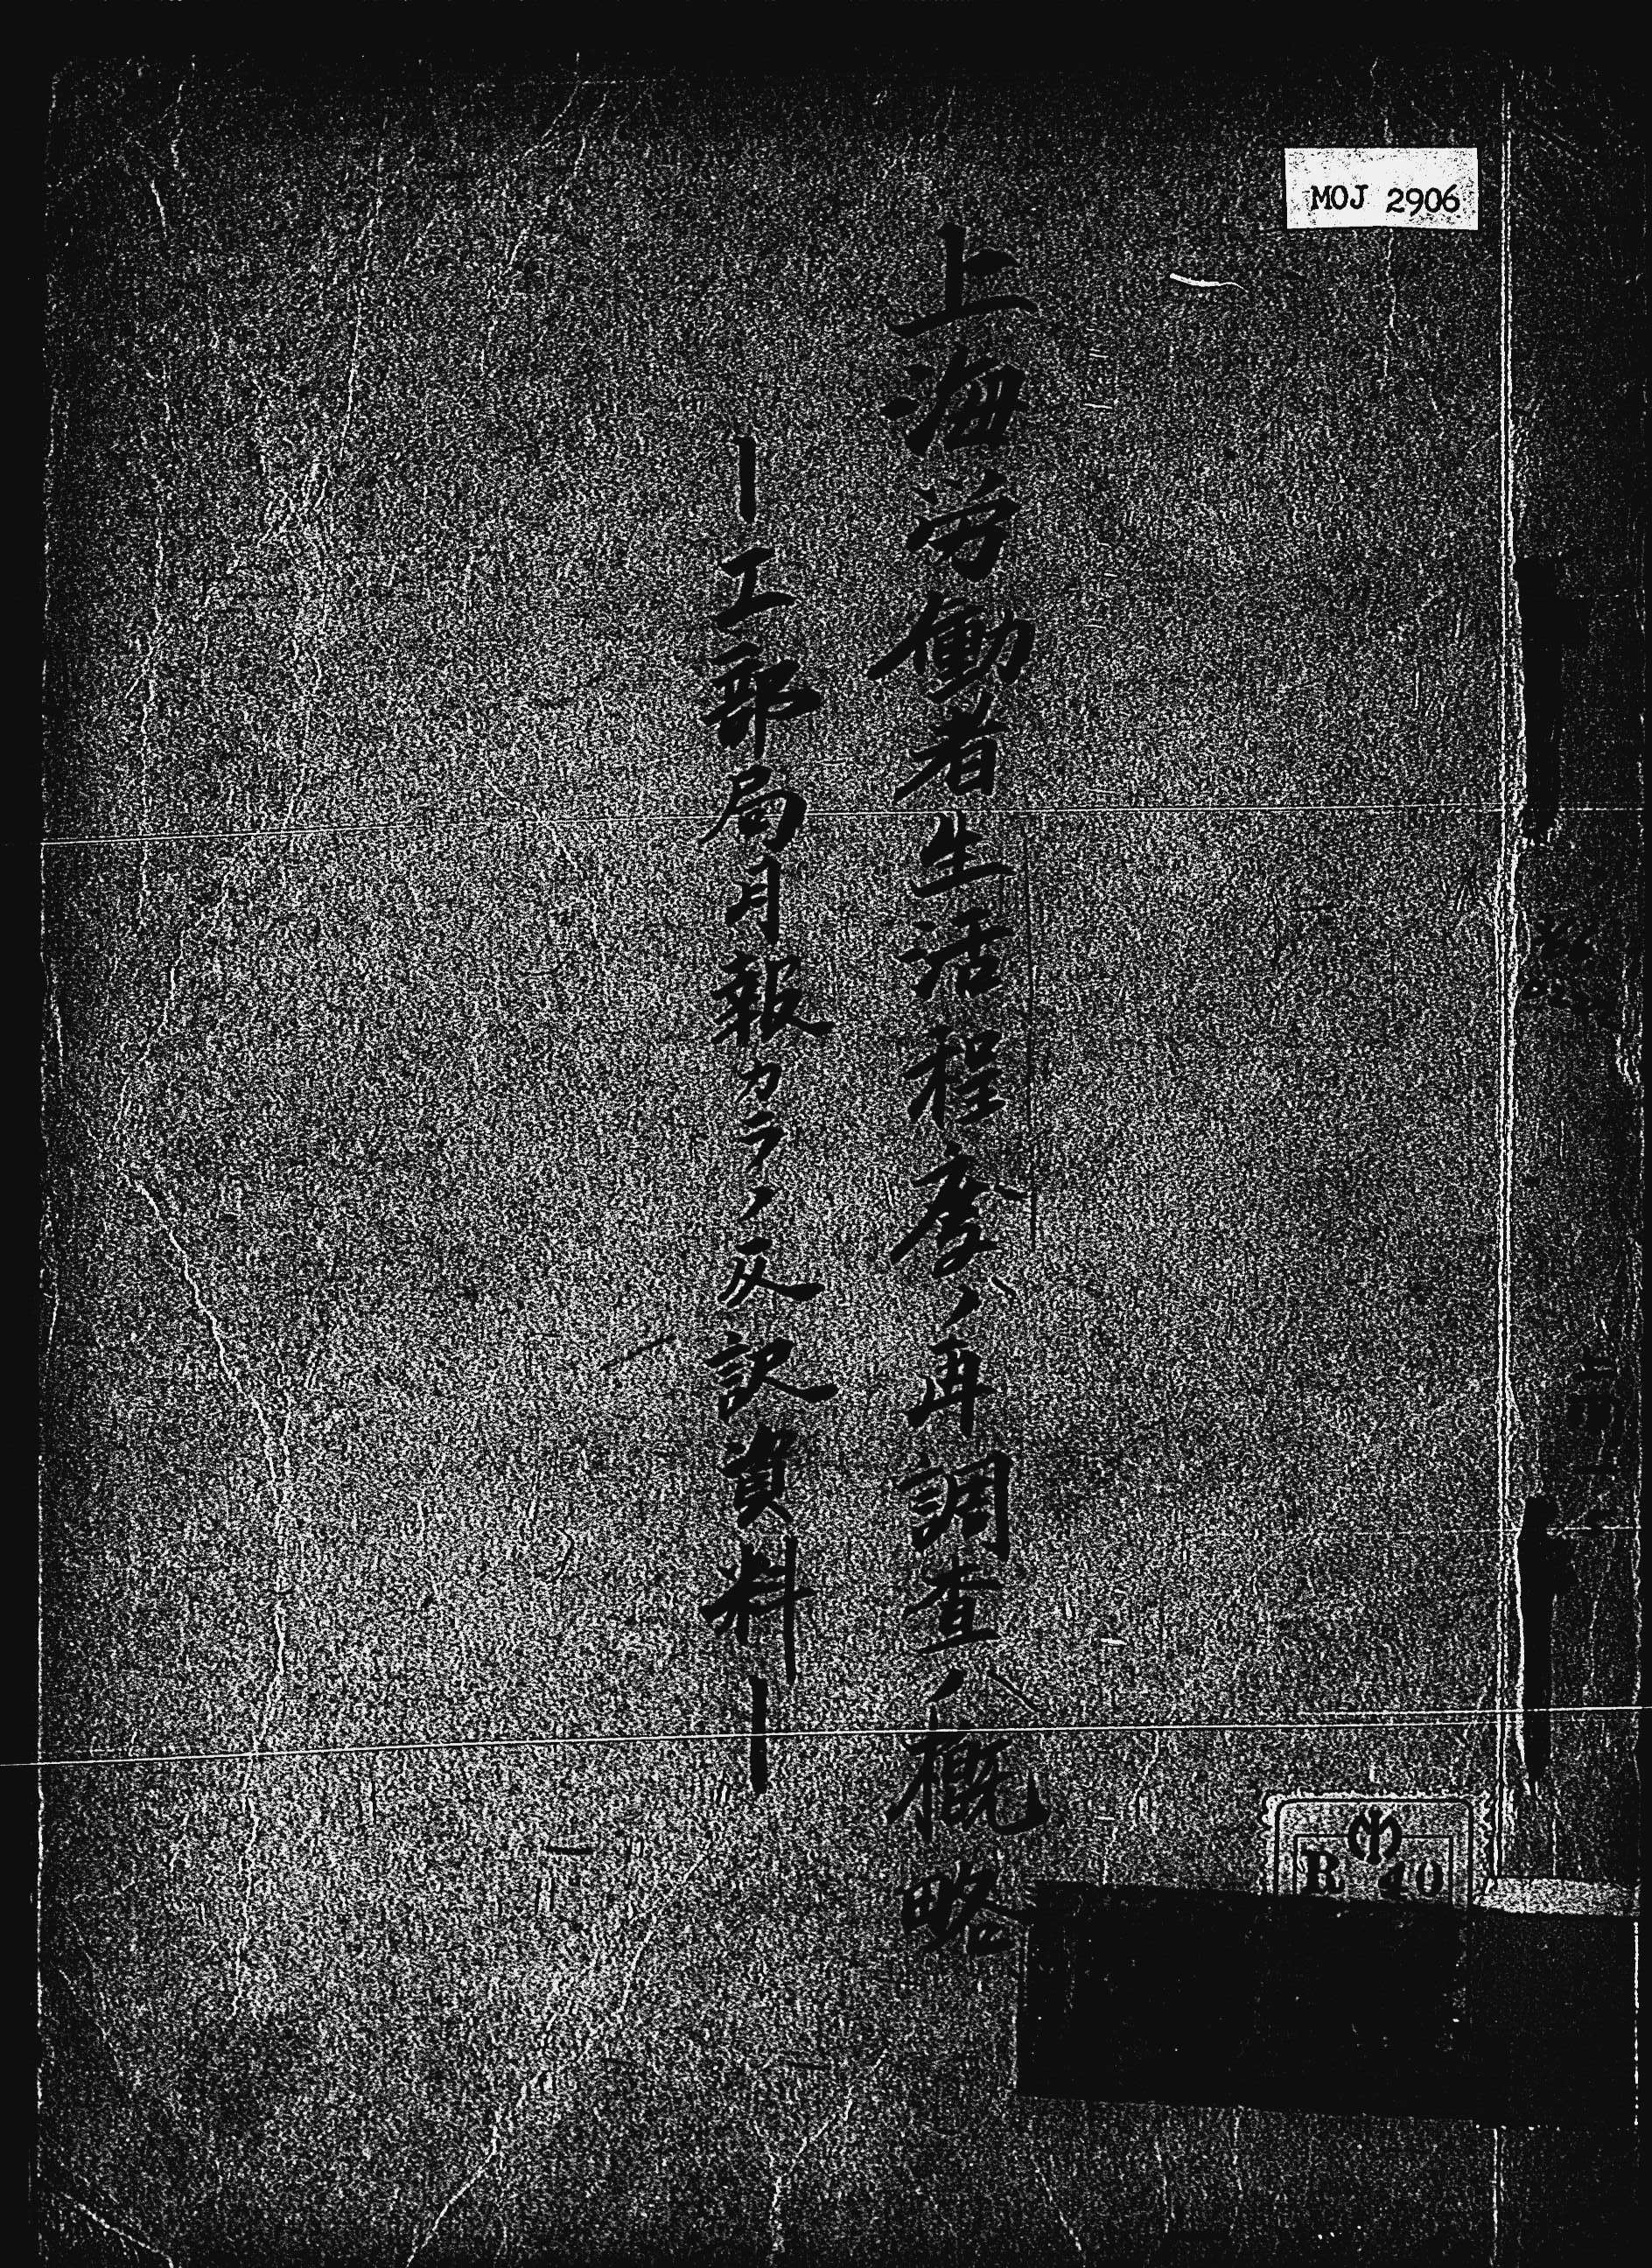 MOJ 2906
上海労働者生活程度ノ再調査ノ概略
ー工部局月報カラノ反訳資料ー
R 40